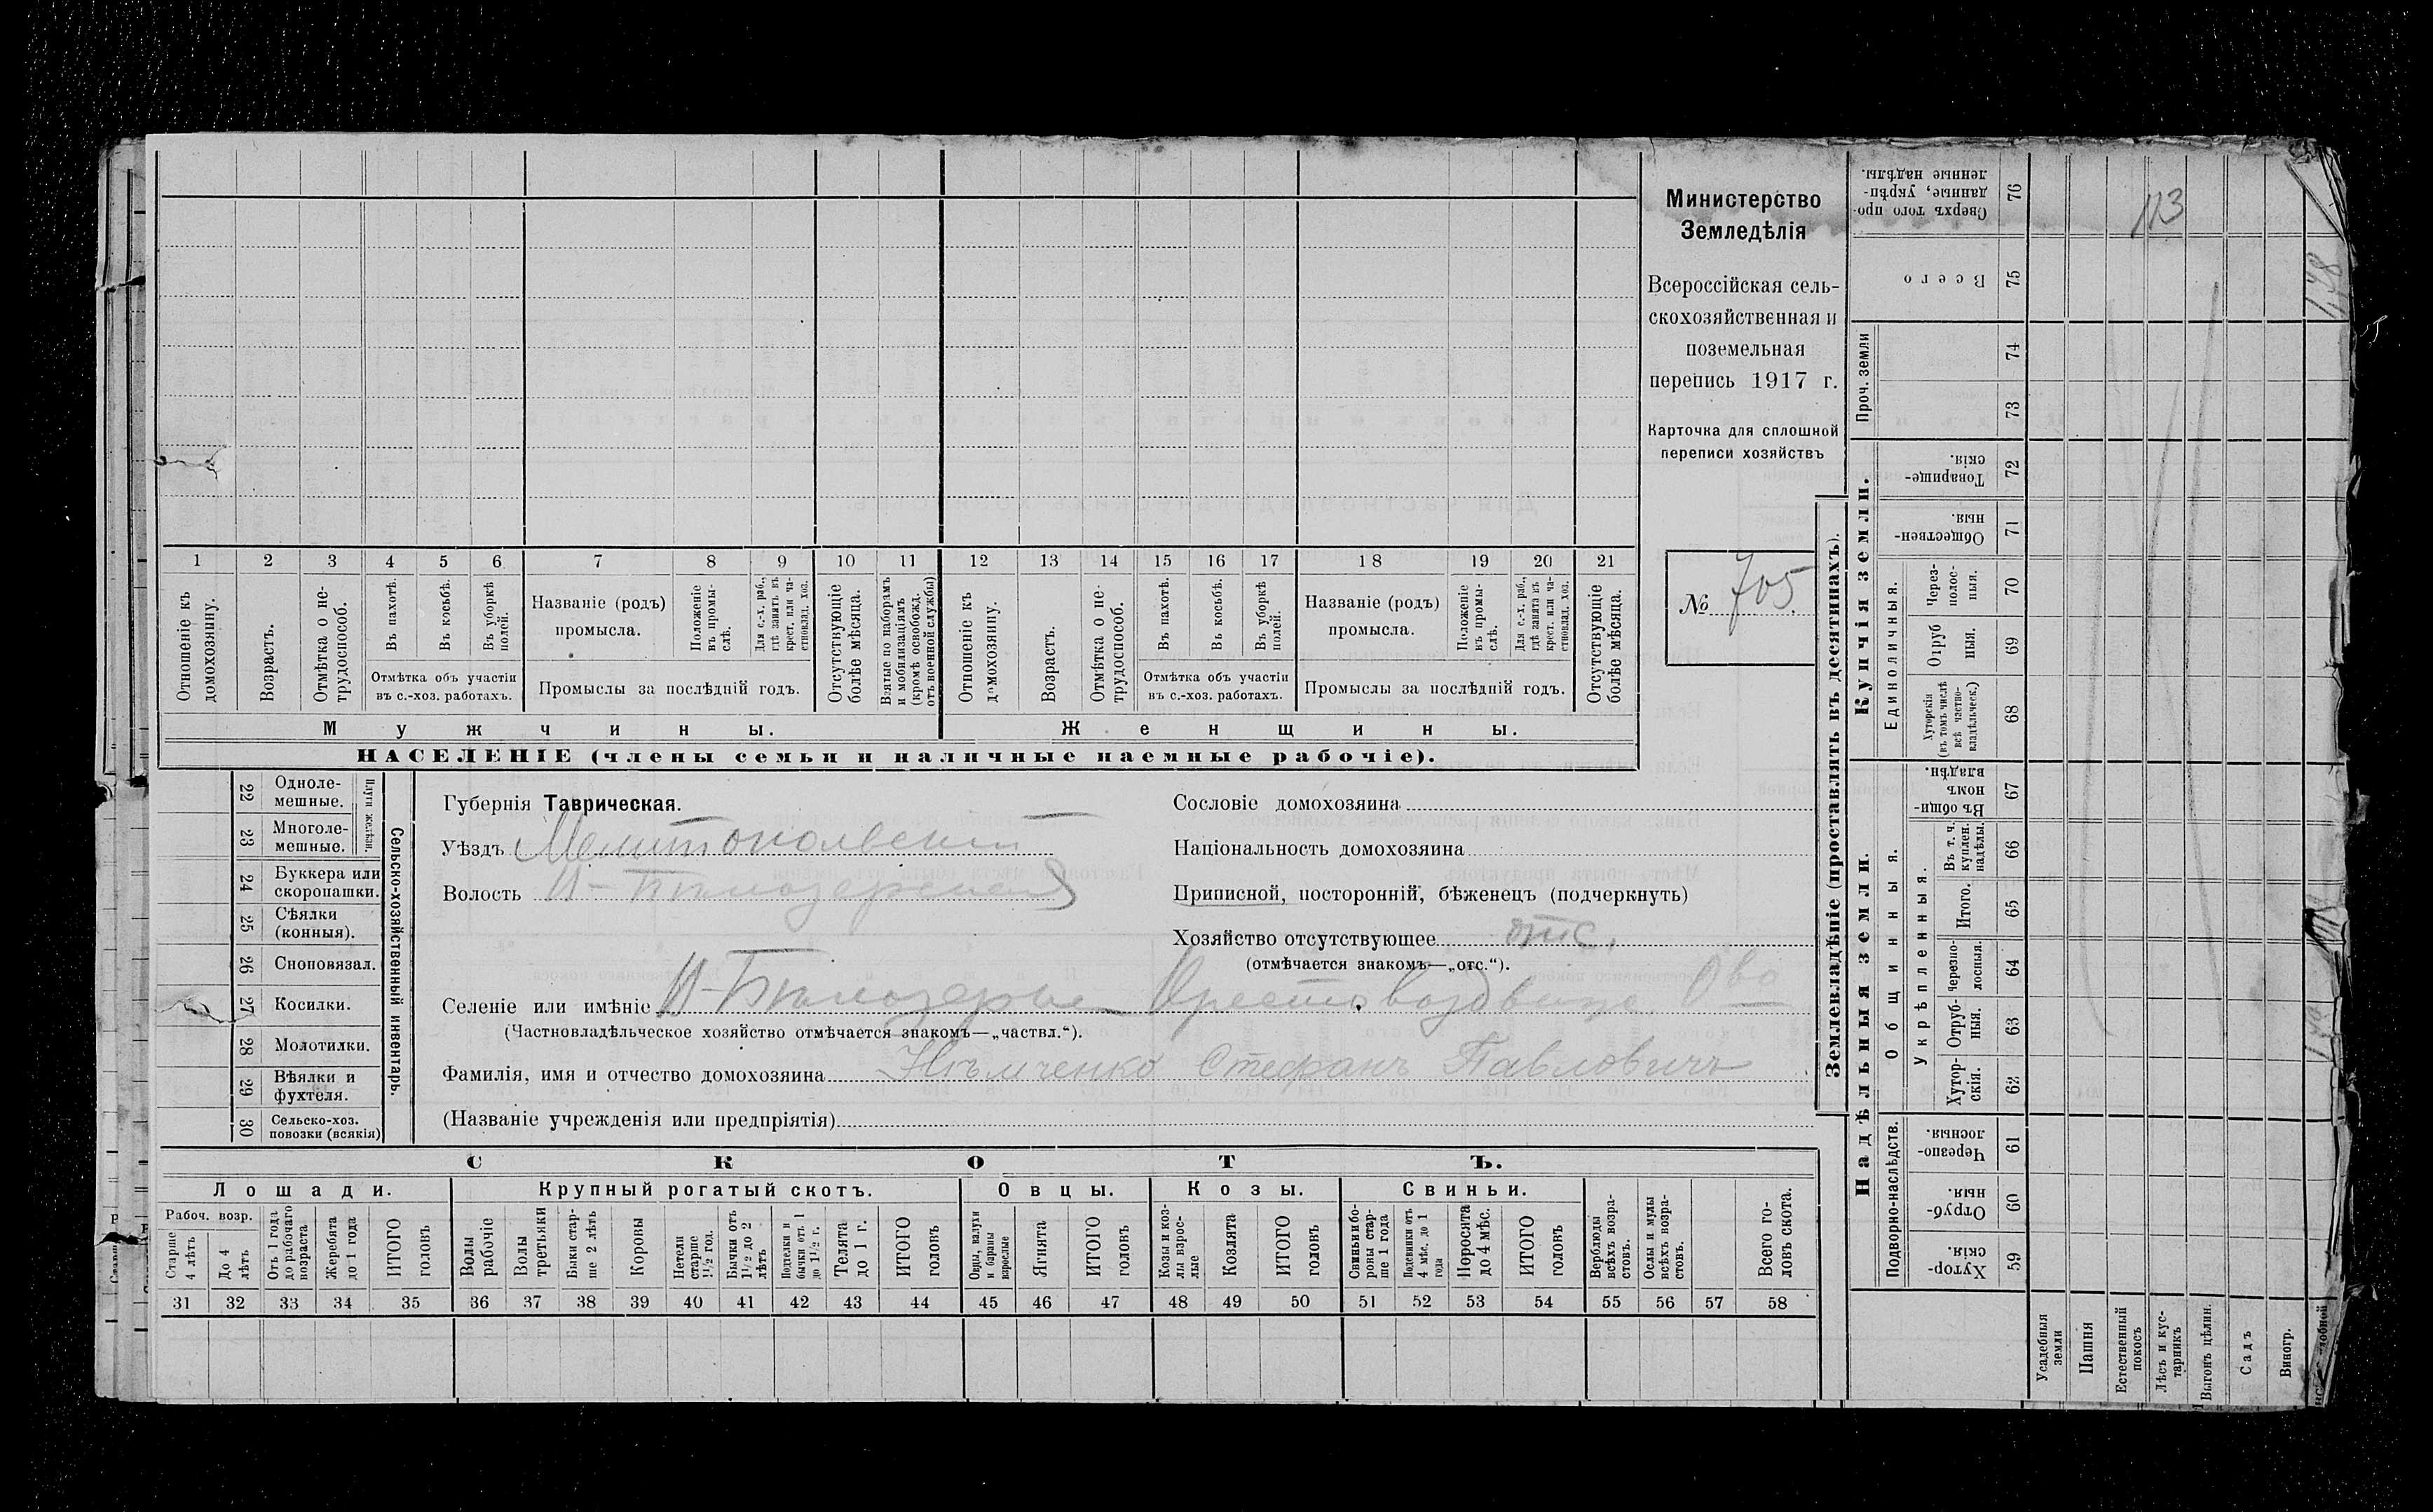 Министерство
Земледѣлія
Всероссійская сель-
скохозяйственная и
поземельная
перепись 1917 г.
Карточка для сплошной
переписи хозяйствъ
№ 705
1 2 3 4 5 6 7 8 9 10 11 12 13 14 15 16 17 18 19 20 21
Отношеніе къ домохозяину.
Возрастъ.
Отмѣтка о не-трудоспособ.
Въ пахотѣ.
Въ косьбѣ.
Въ уборкѣ полей.
Отмѣтка объ участіи
въ с.-хоз. работахъ.
Названіе (родъ)
промысла.
Положеніе въ промы-слѣ.
Для с.-х. раб., гдѣ занятъ въ крест. или ча-стновлад. хоз.
Промыслы за послѣдній годъ.
Отсутствующіе болѣе мѣсяца.
Взятые по наборамъ и мобилизаціямъ (кромѣ освобожд. отъ военной службы)
Отношеніе къ домохозяину.
Возрастъ.
Отмѣтка о не-трудоспособ.
Въ пахотѣ.
Въ косьбѣ.
Въ уборкѣ полей.
Отмѣтка объ участіи
въ с.-хоз. работахъ.
Названіе (родъ)
промысла.
Положеніе въ промы-слѣ.
Для с.-х. раб., гдѣ занята въ крест. или ча-стновлад. хоз.
Промыслы за послѣдній годъ.
Отсутствующіе болѣе мѣсяца.
Мужчины.
Женщины.
НАСЕЛЕНІЕ (члены семьи и наличные наемные рабочіе).
22 Одноле-мешные.
23 Многоле-мешные.
Плуги желѣзн.
24 Буккера или скоропашки.
25 Сѣялки (конныя).
26 Сноповязал.
27 Косилки.
28 Молотилки.
29 Вѣялки и фухтеля.
30 Сельско-хоз. повозки (всякія)
Сельско-хозяйственный инвентарь.
Губернія Таврическая.
Уѣздъ Мелитопольскій
Волость И-Бѣлозерская
Сословіе домохозяина
Національность домохозяина
Приписной, посторонній, бѣженецъ (подчеркнуть)
Хозяйство отсутствующее отс.
(отмѣчается знакомъ—„отс.“).
Селеніе или имѣніе И-Бѣлозерье Крестовоздвиже. Ово
(Частновладѣльческое хозяйство отмѣчается знакомъ—„частвл.“).
Фамилія, имя и отчество домохозяина Нѣмченко Стефанъ Павловичъ
(Названіе учрежденія или предпріятія)
СКОТЪ.
Лошади.
Крупный рогатый скотъ.
Овцы.
Козы.
Свиньи.
Рабоч. возр.
Старше 4 лѣтъ
До 4 лѣтъ
Отъ 1 года до рабочаго возраста
Жеребята до 1 года
ИТОГО головъ
Волы рабочіе
Волы третьяки
Быки стар-ше 2 лѣтъ
Коровы
Нетели старше 1½ год.
Бычки отъ 1½ до 2 лѣтъ
Подтелки и бычки отъ 1 до 1½ г.
Телята до 1 г.
ИТОГО головъ
Овцы, валухи и бараны взрослые
Ягнята
ИТОГО головъ
Козы и коз-лы взрос-лые
Козлята
ИТОГО головъ
Свиньи и бо-ровы стар-ше 1 года
Подсвинки отъ 4 мѣс. до 1 года
Поросята до 4 мѣс.
ИТОГО головъ
Верблюды всѣхъ возра-стовъ.
Ослы и мулы всѣхъ возра-стовъ.
Всего го-ловъ скота.
31 32 33 34 35 36 37 38 39 40 41 42 43 44 45 46 47 48 49 50 51 52 53 54 55 56 57 58
Землевладѣніе (проставлять въ десятинахъ).
Надѣльныя земли.
Купчія земли.
Проч. земли
Подворно-наслѣдств.
Общинныя.
Укрѣпленныя.
Единоличныя.
Хутор-скія. 59
Отруб-ныя. 60
Черезпо-лосныя. 61
Хутор-скія. 62
Отруб-ныя. 63
Черезпо-лосныя. 64
Итого. 65
Въ т. ч. куплен. надѣлы. 66
Въ общин-номъ владѣн. 67
Хуторскія (въ томъ числѣ всѣ частно-владѣльческ.) 68
Отруб ныя. 69
Через-полос-ныя. 70
Обществен-ныя. 71
Товарище-скія. 72
73
74
Всего 75
Сверхъ того про-данные, укрѣп-ленные надѣлы. 76
Усадебныя земли
Пашня
Естественный покосъ
Лѣсъ и кус-тарникъ
Выгонъ цѣлин.
Садъ
Виногр.
113